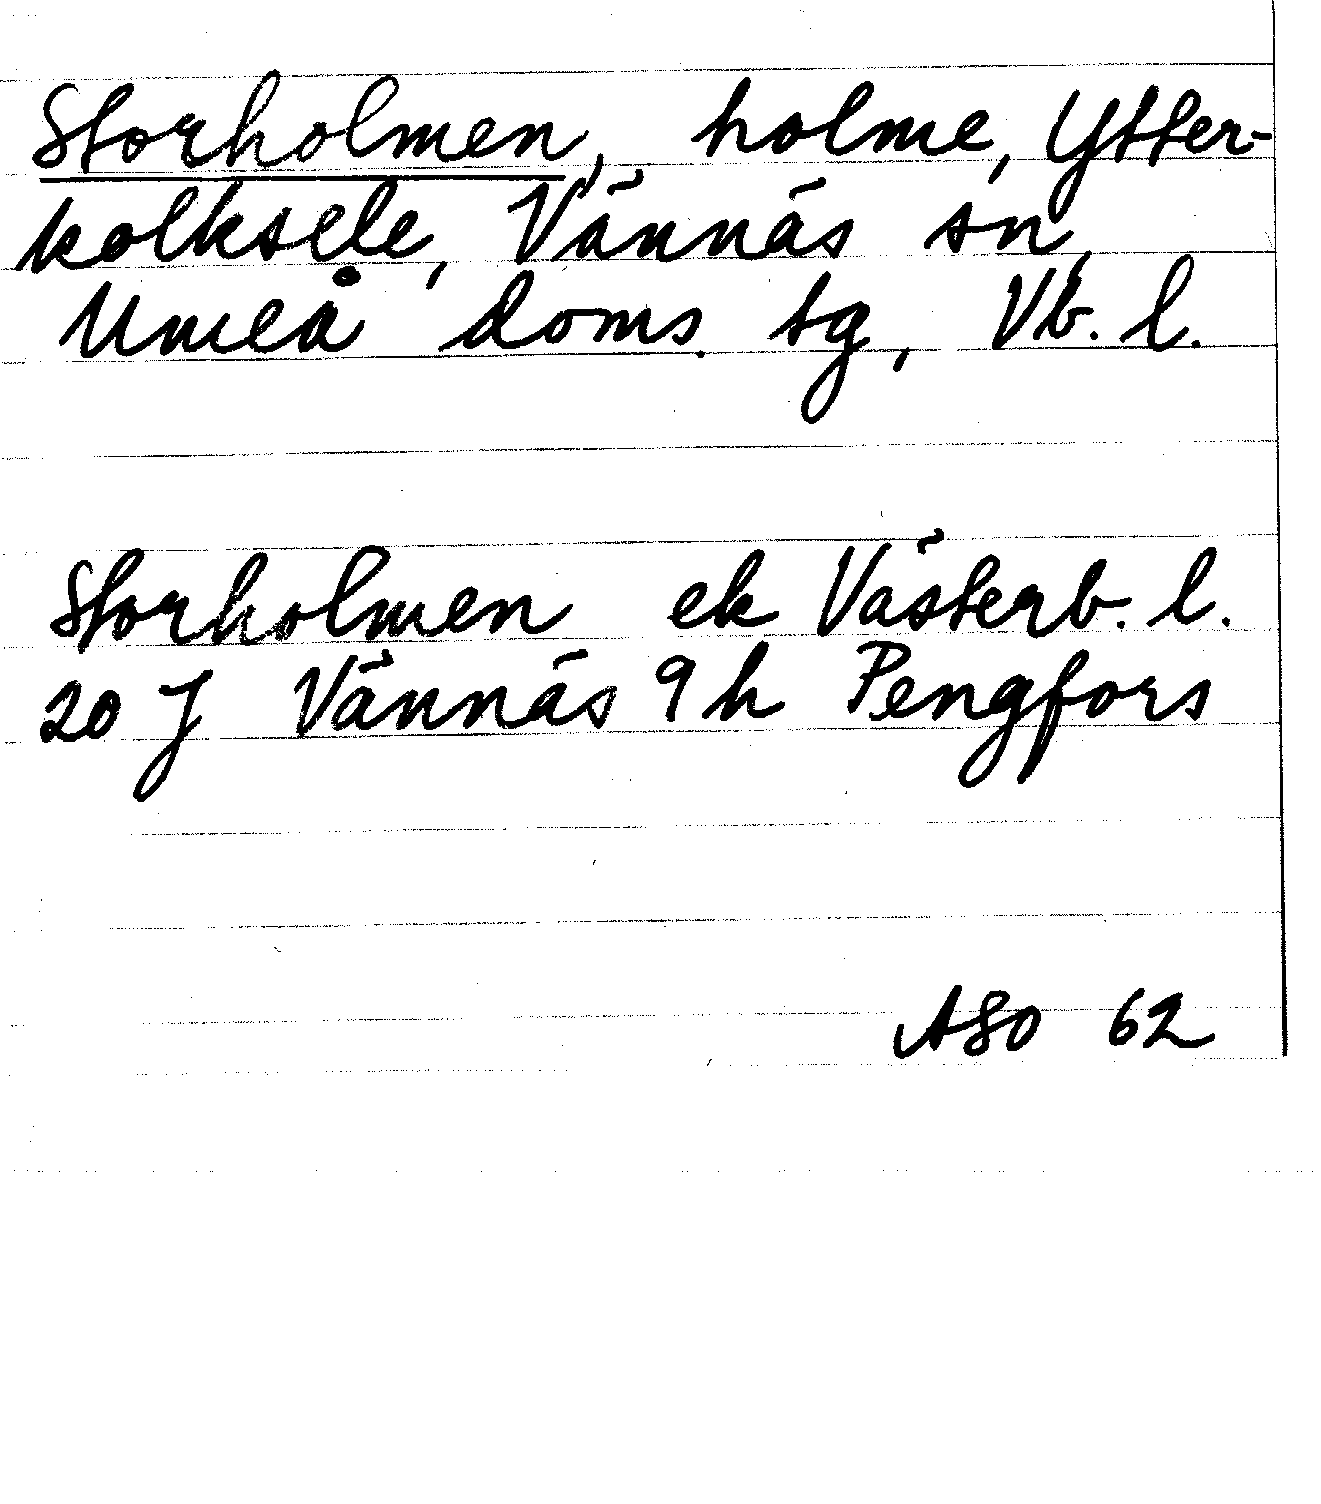 Storholmen, holme, Ytter-
kolksele, Vännäs sn,
Umeå doms. sg, Vb. l.
Storholmen ek Västerb. l.
20 J Vännäs 9 h Pengfors
ASO 62